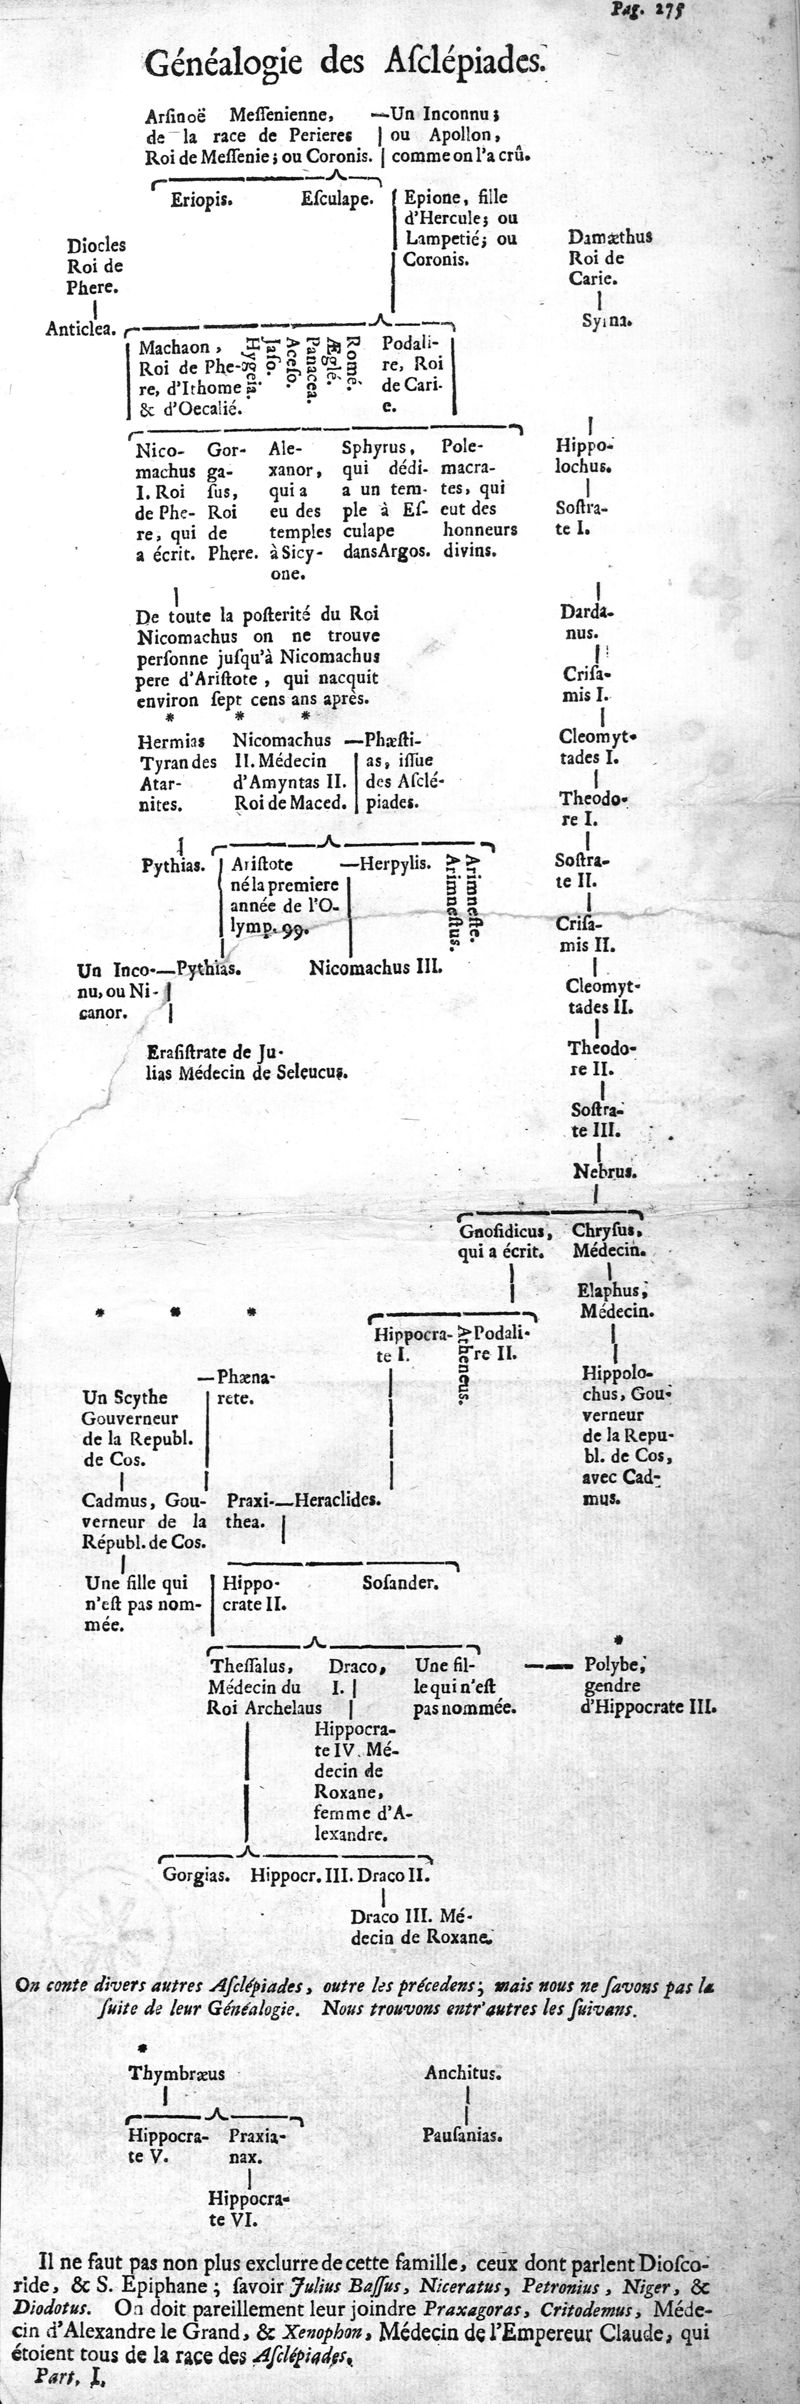 Pag. 275
Généalogie des Aſclépiades.
Arſinoë Meſſenienne,
de la race de Perieres
Roi de Meſſenie; ou Coronis.
—Un Inconnu;
ou Apollon,
comme on l'a crû.
Eriopis.
Eſculape.
Epione, fille
d'Hercule; ou
Lampetié; ou
Coronis.
Diocles
Roi de
Phere.
Anticlea.
Damæthus
Roi de
Carie.
Syrna.
Machaon,
Roi de Phe-
re, d'Ithome
& d'Oecalié.
Hygeia.
Jaſo.
Aceſo.
Panacea.
Æglé.
Romé.
Podali-
re, Roi
de Cari-
e.
Nico-
machus
I. Roi
de Phe-
re, qui
a écrit.
Gor-
ga-
ſus,
Roi
de
Phere.
Ale-
xanor,
qui a
eu des
temples
à Sicy-
one.
Sphyrus,
qui dédi-
a un tem-
ple à Eſ-
culape
dans Argos.
Pole-
macra-
tes, qui
eut des
honneurs
divins.
Hippo-
lochus.
Soſtra-
te I.
De toute la poſterité du Roi
Nicomachus on ne trouve
perſonne juſqu'à Nicomachus
pere d'Ariſtote, qui nacquit
environ ſept cens ans après.
Darda-
nus.
Criſa-
mis I.
Cleomyt-
tades I.
Theodo-
re I.
Soſtra-
te II.
Criſa-
mis II.
Cleomyt-
tades II.
Theodo-
re II.
Soſtra-
te III.
Nebrus.
* * *
Hermias
Tyran des
Atar-
nites.
Nicomachus
II. Médecin
d'Amyntas II.
Roi de Maced.
—Phæſti-
as, iſſue
des Aſclé-
piades.
Pythias.
Ariſtote
né la premiere
année de l'O-
lymp. 99.
—Herpylis.
Arimneſtus.
Arimneſte.
Un Inco-—Pythias.
nu, ou Ni-
canor.
Nicomachus III.
Eraſiſtrate de Ju-
lias Médecin de Seleucus.
Gnoſidicus,
qui a écrit.
Chryſus,
Médecin.
Elaphus,
Médecin.
Hippolo-
chus, Gou-
verneur
de la Repu-
bl. de Cos,
avec Cad-
mus.
* * *
Hippocra-
te I.
Atheneus.
Podali-
re II.
Un Scythe
Gouverneur
de la Republ.
de Cos.
—Phæna-
rete.
Cadmus, Gou-
verneur de la
Républ. de Cos.
Praxi-—Heraclides.
thea.
Une fille qui
n'eſt pas nom-
mée.
Hippo-
crate II.
Soſander.
Theſſalus,
Médecin du
Roi Archelaus
Draco,
I.
Une fil-
le qui n'eſt
pas nommée.
*
Polybe,
gendre
d'Hippocrate III.
Hippocra-
te IV. Mé-
decin de
Roxane,
femme d'A-
lexandre.
Gorgias. Hippocr. III. Draco II.
Draco III. Mé-
decin de Roxane.
On conte divers autres Aſclépiades, outre les précedens; mais nous ne ſavons pas la
ſuite de leur Généalogie. Nous trouvons entr'autres les ſuivans.
*
Thymbræus
Hippocra-
te V.
Praxia-
nax.
Hippocra-
te VI.
Anchitus.
Pauſanias.
Il ne faut pas non plus exclurre de cette famille, ceux dont parlent Dioſco-
ride, & S. Epiphane; ſavoir Julius Baſſus, Niceratus, Petronius, Niger, &
Diodotus. On doit pareillement leur joindre Praxagoras, Critodemus, Méde-
cin d'Alexandre le Grand, & Xenophon, Médecin de l'Empereur Claude, qui
étoient tous de la race des Aſclépiades.
Part. I.